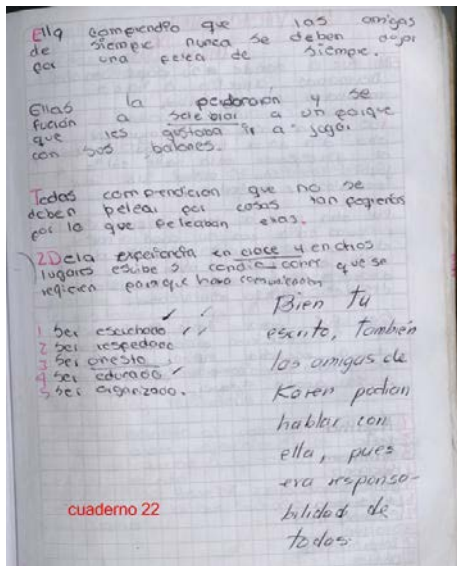 Ella comprendio que las amigas
de siempre nunca se deben dejar
por una pelea de siempre.
Ellas la perdonaron y se
fueron a selebrar a un parque
que les gustaba ir a jugar
con sus balones.
Todas comprendieron que no se
deben pelear por cosas tan pequeñas
por lo que peleaban ellas.
2 De la experiencia en clace y en otros
lugares escibe 5 condiciones que se
requieren para que haya comunicacion
1 Ser escuchado
2 Ser respedado
3 Ser onesto
4 Ser educado
5 Ser organizado.
Bien tu
escrito, también
las amigas de
Karen podian
hablar con
ella, pues
era responsa-
bilidad de
todas.
cuaderno 22